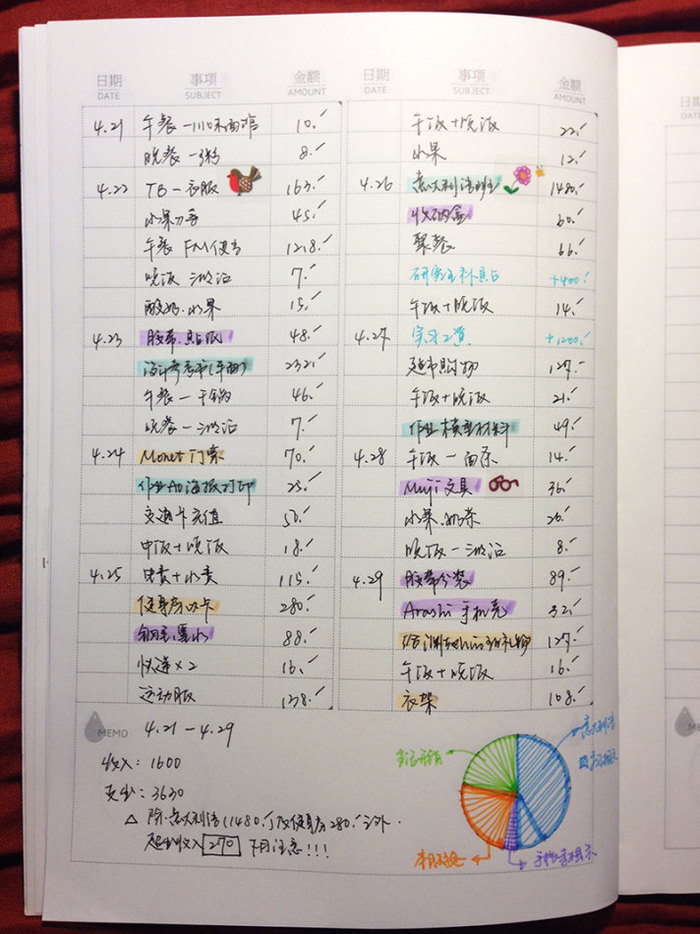 日期 事项 金额
DATE SUBJECT AMOUNT
4.21 午餐—川味面馆 10.
晚餐—粥 8.
4.22 TB—衣服 163.
水果刀 45.
午餐 FM便当 12.8
晚饭 7.
酸奶.水果 15.
4.23 胶带.贴纸 48.
设计参考书(平面) 232.
午餐—干锅 46.
晚餐— 7.
4.24 Monet门票 70.
作业A0海报打印 25.
交通卡充值 50.
中饭+晚饭 18.
4.25 电费+水费 115.
健身房办卡 280.
钢笔墨水 88.
快递×2 16.
运动服 138.
日期 事项 金额
DATE SUBJECT AMOUNT
午饭+晚饭 22.
水果 12.
4.26 意大利语班 1480.
收纳盒 60.
聚餐 66.
研究生补贴 +400.
午饭+晚饭 14.
4.27 实习工资 +1200.
超市购物 127.
午饭+晚饭 21.
作业模型材料 49.
4.28 午饭—面 14.
Muji文具 36.
水果.奶茶 26.
晚饭— 8.
4.29 胶带分装 89.
Arashi手机壳 32.
礼物 127.
午饭+晚饭 16.
衣架 108.
MEMO 4.21—4.29
收入:1600
支出:3630
△ 除.意大利语(1480.)及健身房280.之外.
超出收入 270 下月注意!!!
生活开销
意大利语
日期
DATE